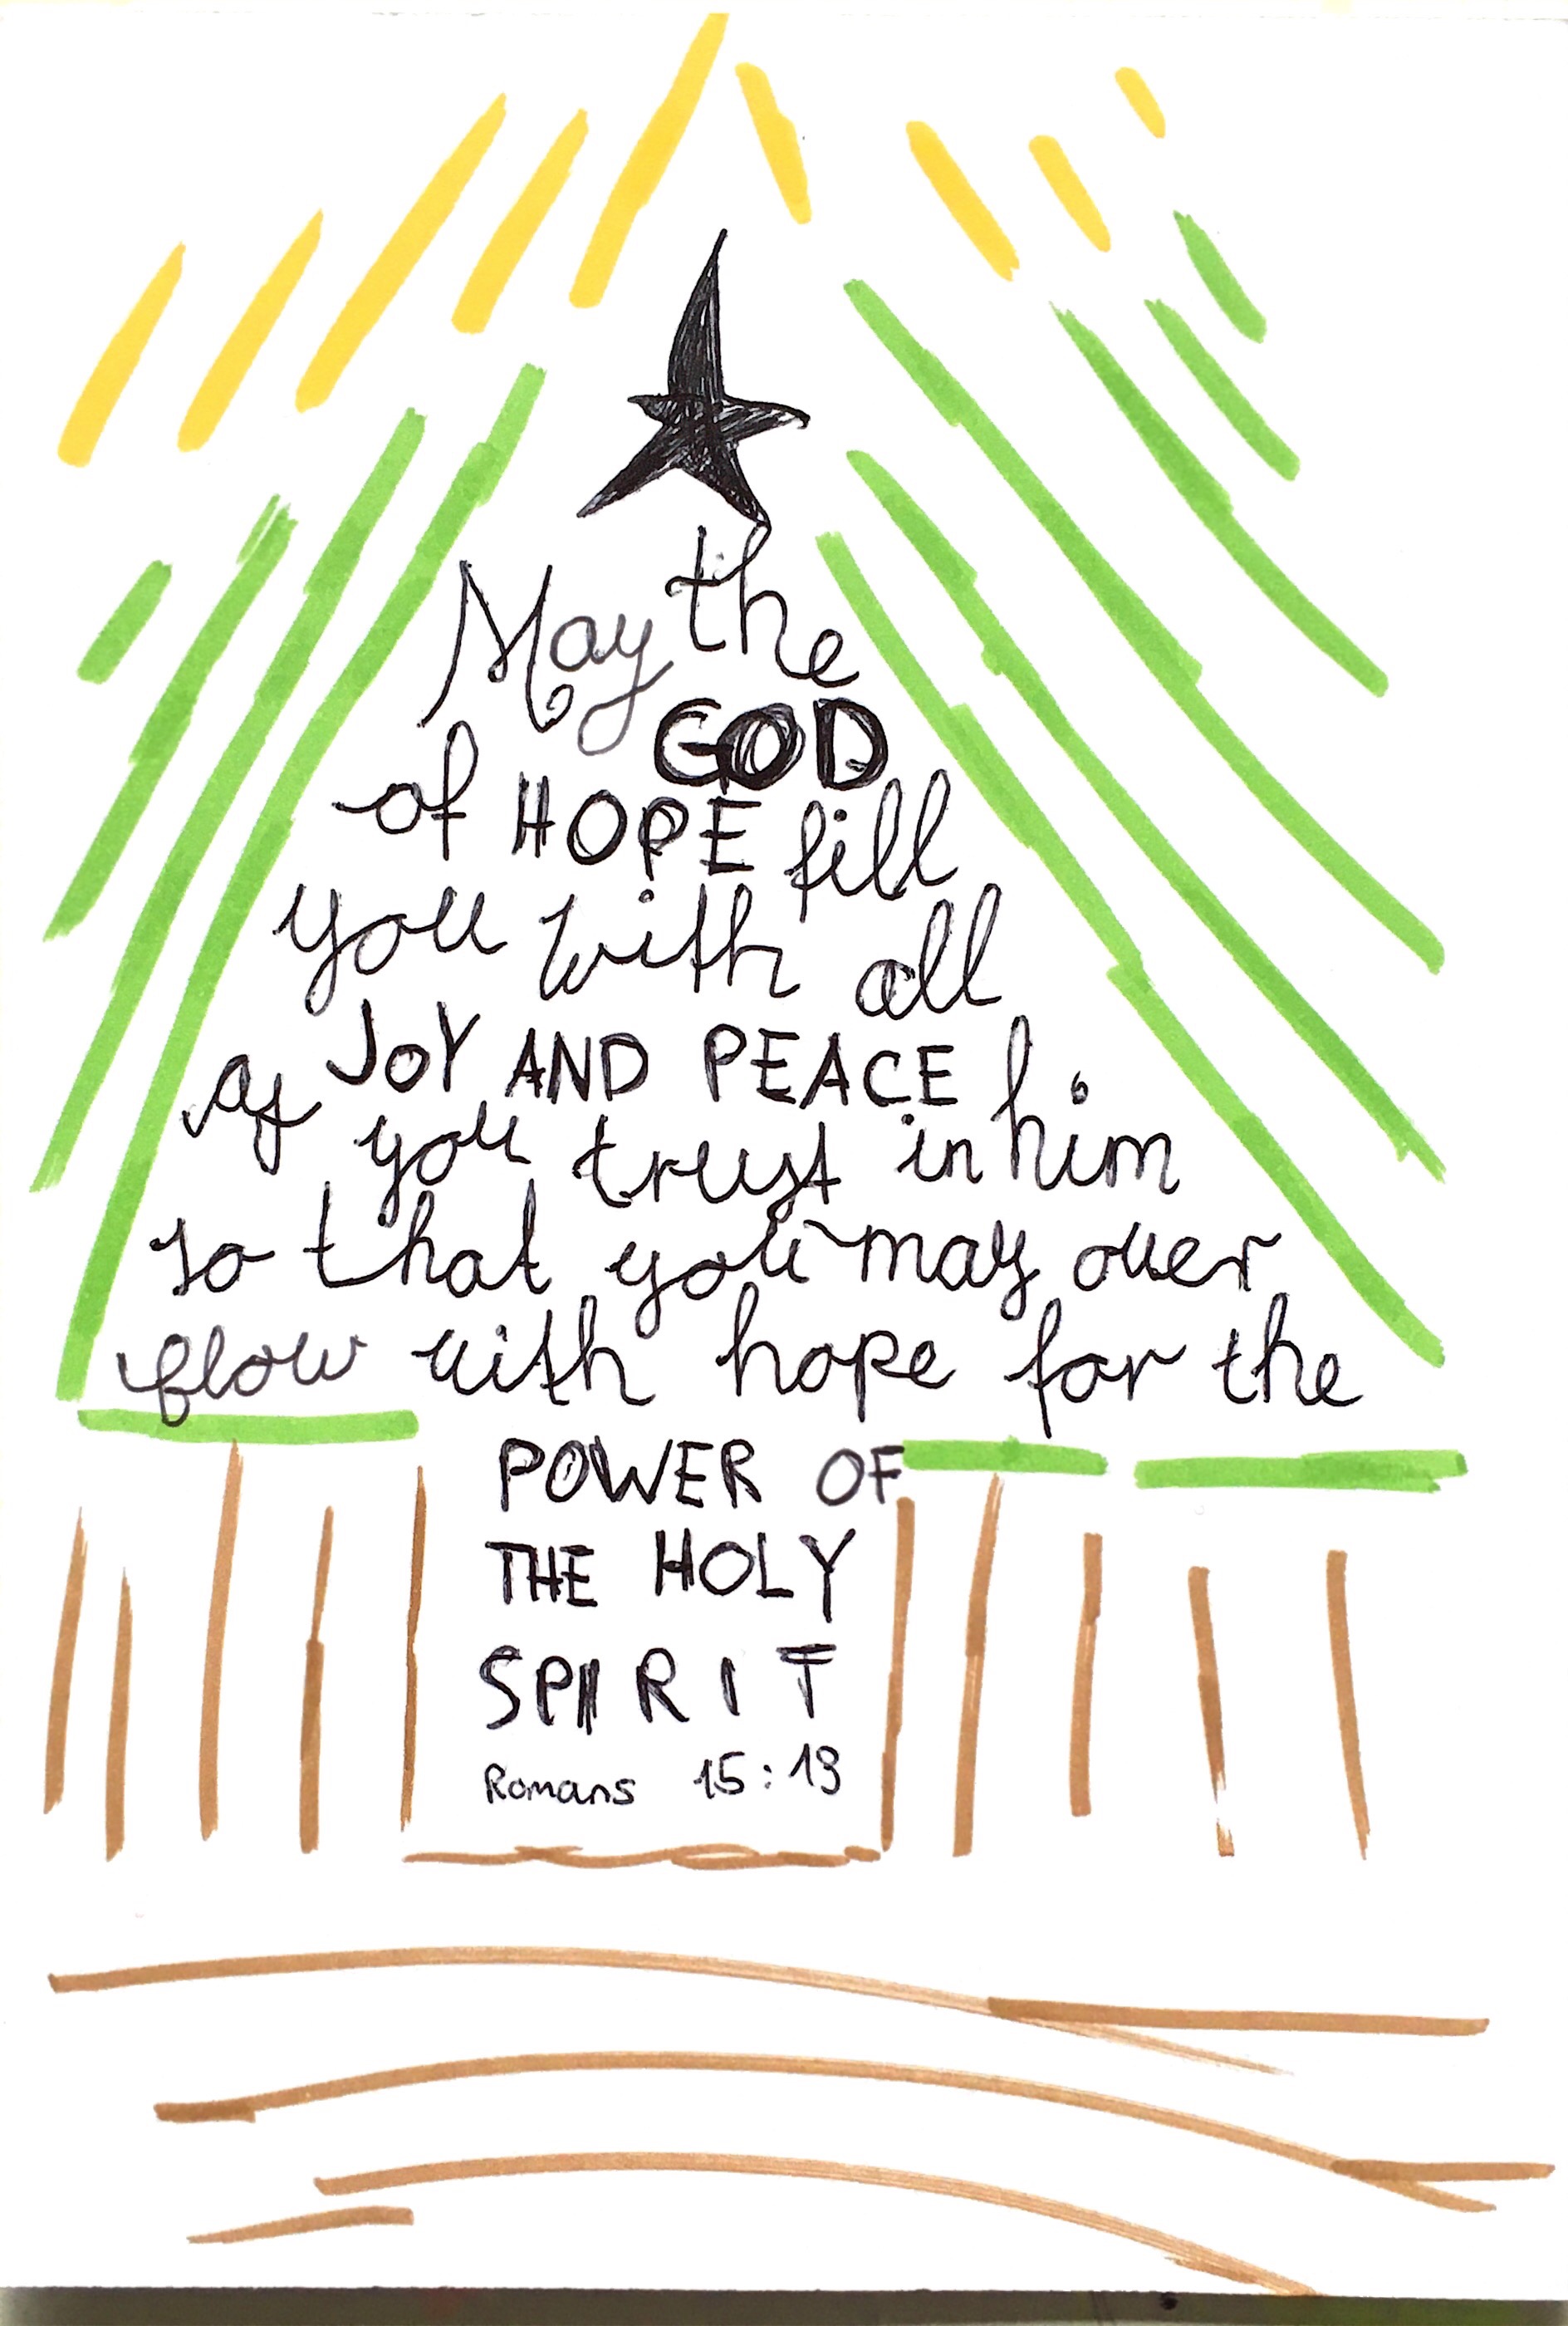 May the
GOD
of HOPE fill
you with all
JOY AND PEACE
as you trust in him
so that you may over
flow with hope for the
POWER OF
THE HOLY
SPIRIT
Romans 15:13